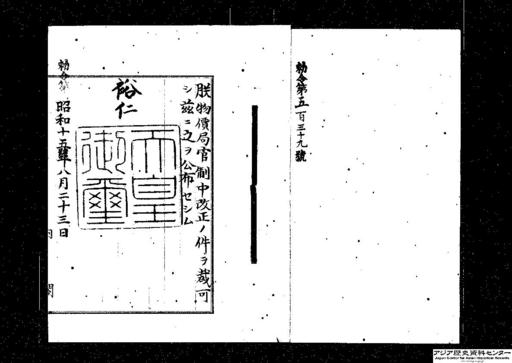 勅令第五百三十九號
朕物價局官制中改正ノ件ヲ裁可
シ茲ニ之ヲ公布セシム
裕仁
天皇
御璽
昭和十五年八月二十三日
勅令
内
閣
アジア歴史資料センター
Japan Center for Asian Historical Records